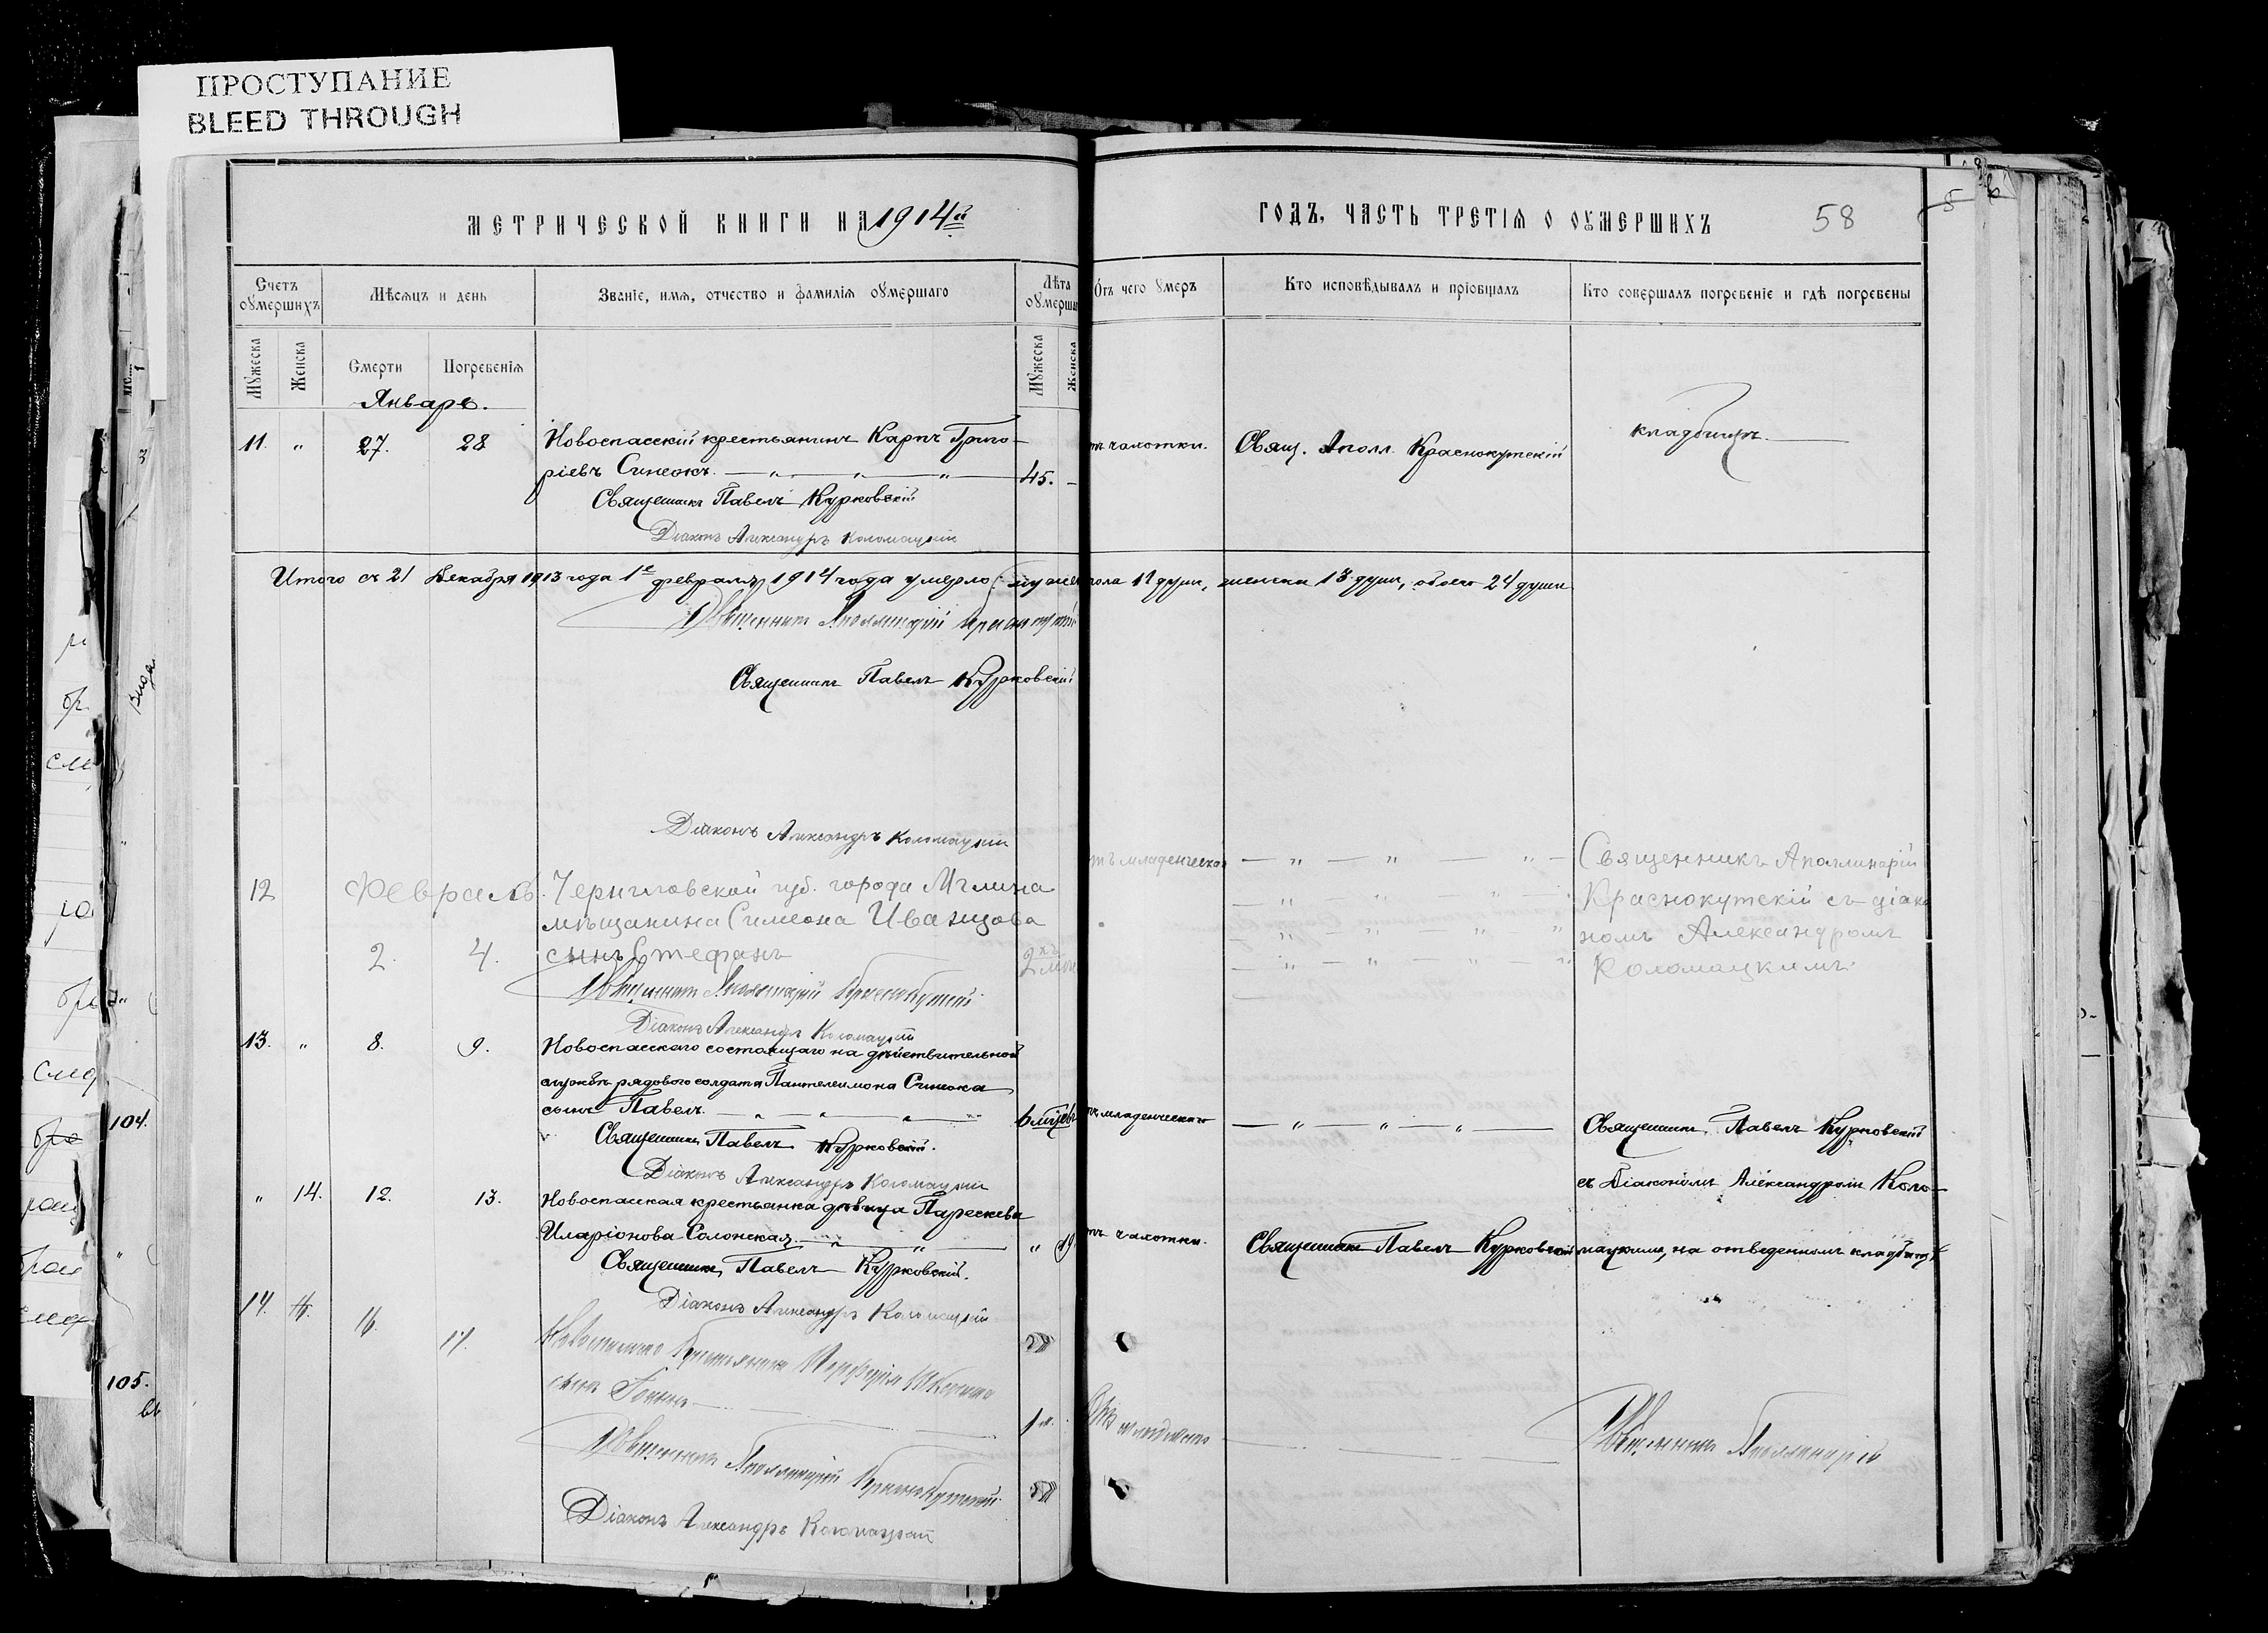 ПРОСТУПАНИЕ
BLEED THROUGH
МЕТРИЧЕСКОЙ КНИГИ НА 1914й
ГОДЪ, ЧАСТЬ ТРЕТІѦ О ОУМЕРШИХЪ
58
Счетъ оумершихъ
Мѣсѧцъ и день
Званіе, имѧ, отчество и фамиліѧ оумершаго
Лѣта оумерша
Отъ чего умеръ
Кто исповѣдывалъ и пріобщалъ
Кто совершалъ погребеніе и гдѣ погребены
Мужеска
Женска
Смерти
Погребеніѧ
Мужеска
Женска
Январь.
11. " 27. 28 Новоспасскій крестьянинъ Карпъ Григо-
ріевъ Синеокъ. 45. чахотки. Свящ. Аполл. Краснокутскій кладбищѣ.
Священникъ Павелъ Курковскій
Діаконъ Александръ Коломацкій
Итого съ 21 Декабря 1913 года 1е февраля 1914 года умерло: мужск пола 11 душъ, женска 13 душъ, обоего 24 души
Священникъ Аполлинарій Краснокутскій
Священникъ Павелъ Курковскій
Діаконъ Александръ Коломацкій
12 Февраль. Черниговской губ. города Мглина
мѣщанина Симеона Иванцова
2. 4. сынъ Стефанъ
тъ младенческой
Священникъ Аполлинарій
Краснокутскій съ діако
номъ Александромъ
Коломацкимъ.
Священникъ Аполлинарій Краснокутскій
Діаконъ Александръ Коломацкій
13. " 8. 9. Новоспасскаго состоящаго на дѣйствительной
службѣ рядового солдата Пантелеимона Синеока
сынъ Павелъ. 6 мѣсяц младенческой Священникъ Павелъ Курковскій
Священникъ Павелъ Курковскій.
Діаконъ Александръ Коломацкій
съ Діакономъ Александромъ Коло-
" 14. 12. 13. Новоспасская крестьянка дѣвица Параскева
Иларіонова Солонская. " 19 чахотки. Священникъ Павелъ Курковскій мацкимъ, на отведенномъ кладбищѣ
Священникъ Павелъ Курковскій.
Діаконъ Александръ Коломацкій
14. 16. 17. крестьянина Порфирія
сынъ Іоаннъ
Священникъ Аполлинарій
Священникъ Аполлинарій Краснокутскій
Діаконъ Александръ Коломацкій
104.
105.